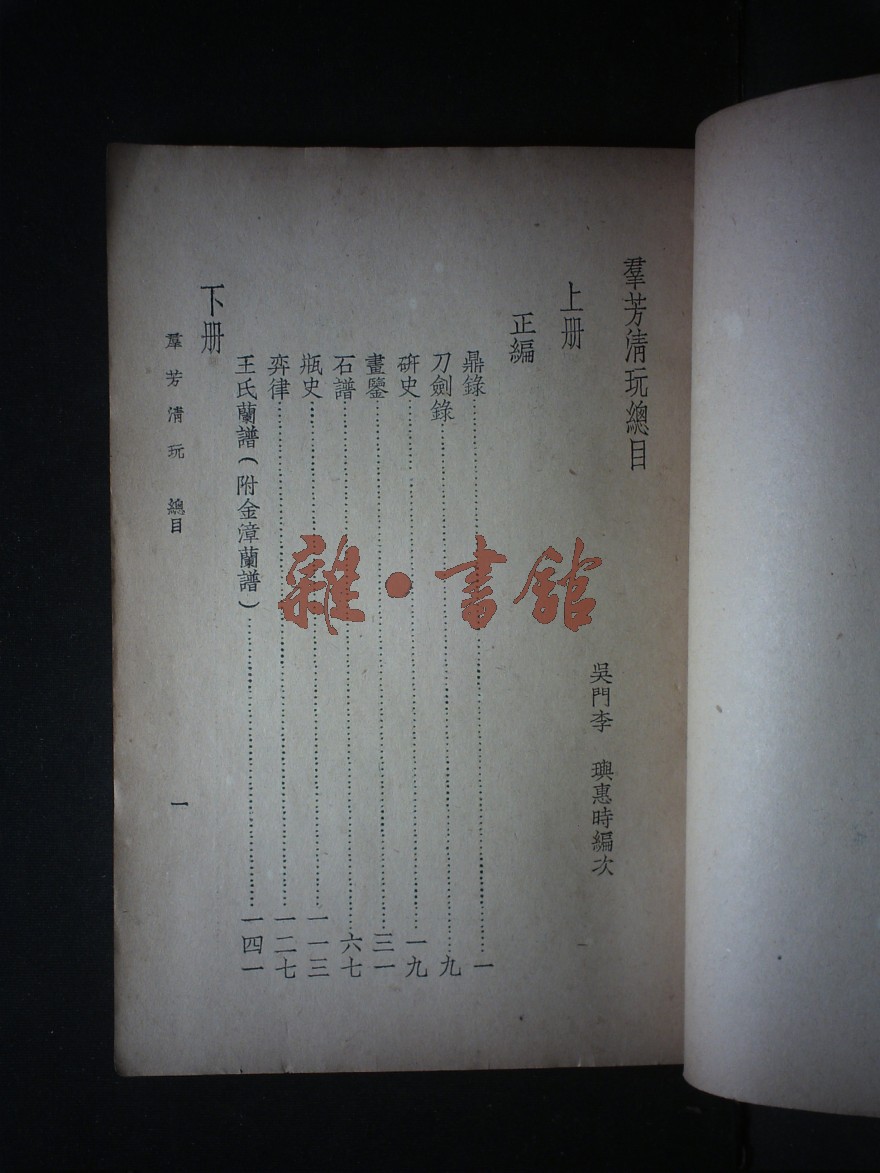 羣芳淸玩總目
吳門李 璵惠時編次
上册
正編
鼎錄……一
刀劍錄……九
硏史……一九
畫鑒……三一
石譜……六七
瓶史……一一三
弈律……一二七
王氏蘭譜(附金漳蘭譜)……一四一
下册
羣芳淸玩 總目
一
雜·書館